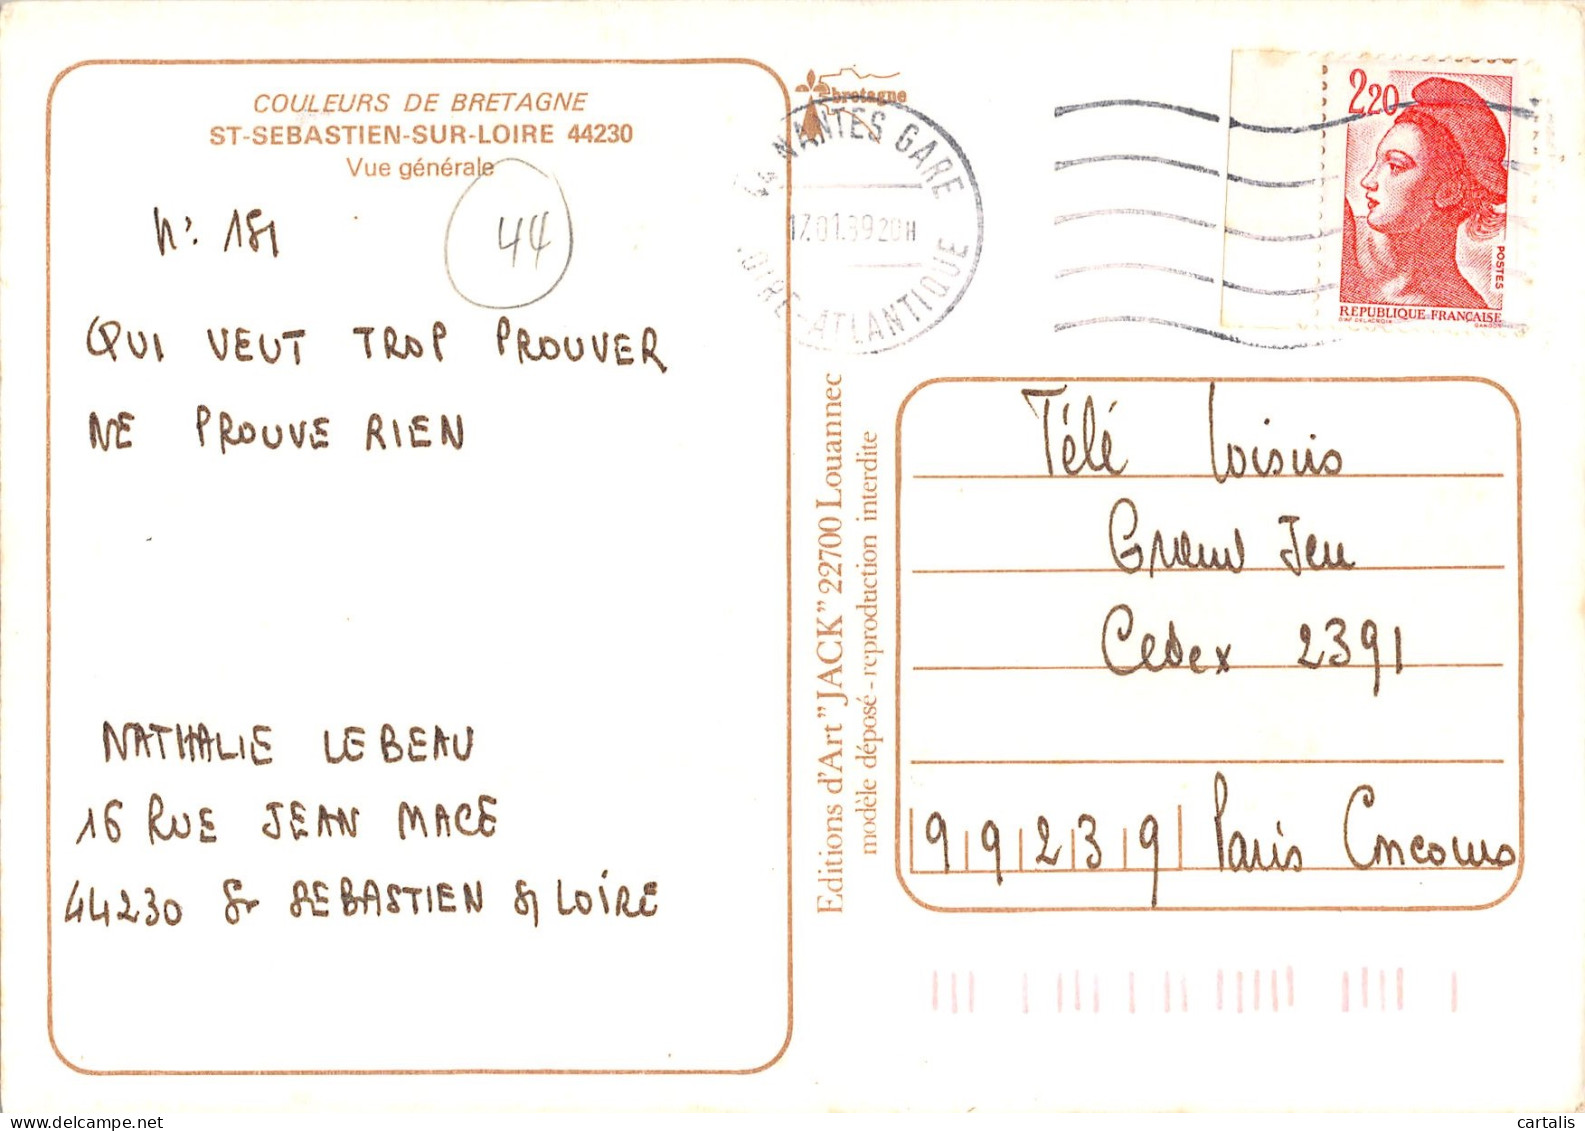 COULEURS DE BRETAGNE
ST-SEBASTIEN-SUR-LOIRE 44230
Vue générale
N°. 181
44
QUI VEUT TROP PROUVER
NE PROUVE RIEN
NATHALIE LEBEAU
16 RUE JEAN MACE
44230 St SEBASTIEN S/ LOIRE
bretagne
44 NANTES GARE
17.01.89 20H
LOIRE-ATLANTIQUE
Editions d'Art "JACK" 22700 Louannec
modèle déposé - reproduction interdite
2,20
POSTES
REPUBLIQUE FRANÇAISE
D'AP DELACROIX GANDON
Télé Loisirs
Grand Jeu
Cedex 2391
99239 Paris Concours
cartalis